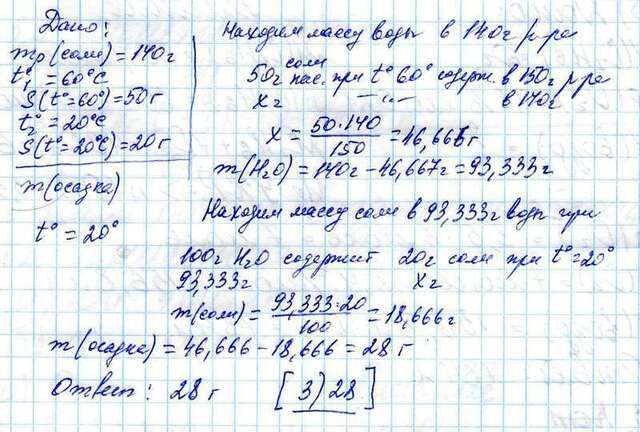 Дано:
mр(соли) = 140г
t°₁ = 60°C
S(t°=60°) = 50г
t°₂ = 20°C
S(t°=20°C) = 20г
m(осадка)
t° = 20°
Находим массу воды в 140г р-ра
соли
50г нас. при t° 60° содерж. в 150г р-ра
xг —〃— в 140г
x = 50·140/150 = 46,667г
m(H₂O) = 140г - 46,667г = 93,333г
Находим массу соли в 93,333г воды при
100г H₂O содержит 20г соли при t°=20°
93,333г xг
m(соли) = 93,333·20/100 = 18,666г
m(осадка) = 46,666 - 18,666 = 28 г
Ответ: 28 г [3) 28]